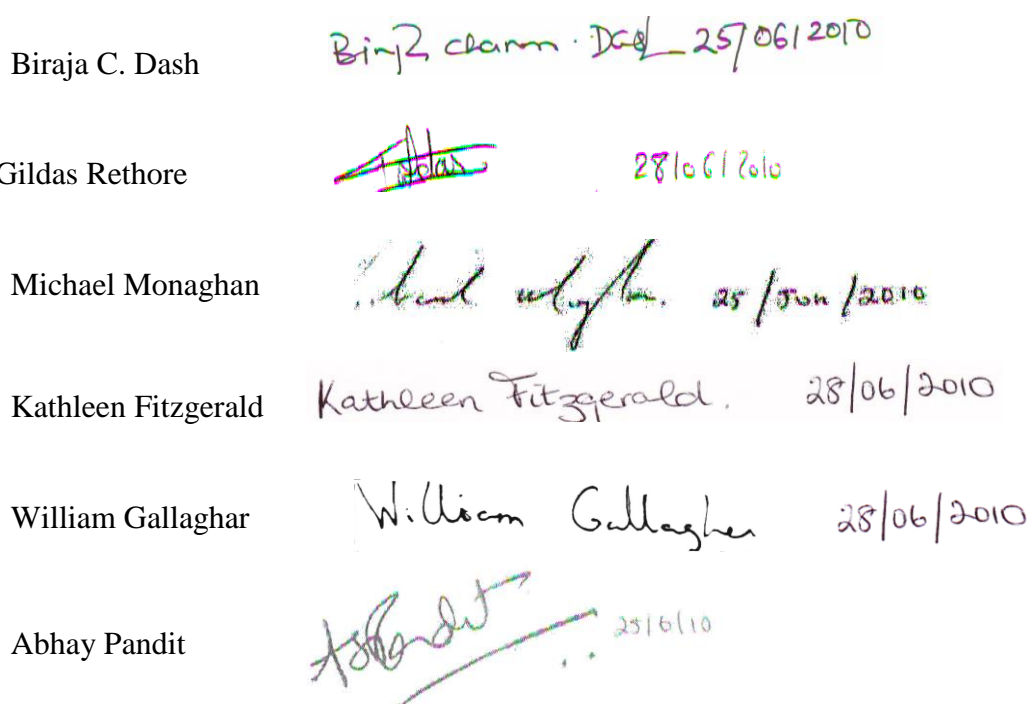 Biraja C. Dash Charan Dash 25/06/2010
Gildas Rethore Gildas 28/06/2010
Michael Monaghan 25/Jun/2010
Kathleen Fitzgerald Kathleen Fitzgerald. 28/06/2010
William Gallaghar William Gallagher 28/06/2010
Abhay Pandit A Pandit 25/6/10